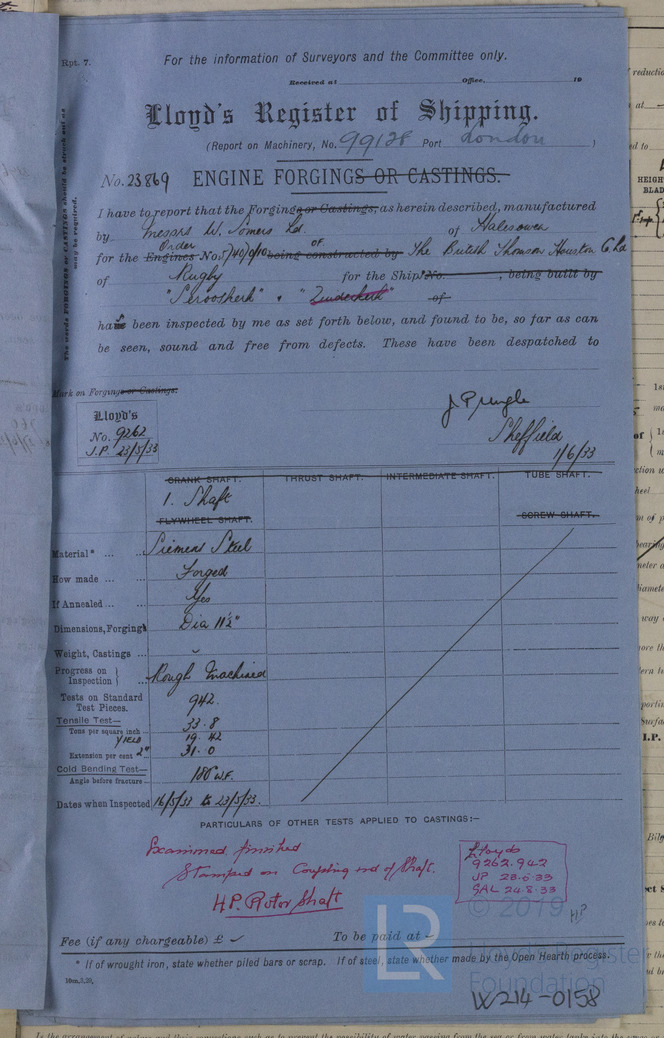 Rpt. 7.
For the information of Surveyors and the Committee only.
Received at Office, 19
Lloyd's Register of Shipping.
(Report on Machinery, No. 99128 Port London )
No. 23869 ENGINE FORGINGS OR CASTINGS.
I have to report that the Forgings or Castings, as herein described, manufactured
by Messrs W. Somers Ld. of Halesowen
Order of
for the Engines No. being constructed by The British Thomson Houston C. Ld
of Rugby for the Ship No. , being built by
"Serooskerk" & "Zuiderkerk" of
has been inspected by me as set forth below, and found to be, so far as can
be seen, sound and free from defects. These have been despatched to
The words FORGINGS or CASTINGS should be struck out as
may be required.
Mark on Forging or Castings.
Lloyd's
No. 9262
J.P. 23/5/33
J Pringle
Sheffield
1/6/33
CRANK SHAFT. THRUST SHAFT. INTERMEDIATE SHAFT. TUBE SHAFT.
1. Shaft
FLYWHEEL SHAFT. SCREW SHAFT.
Material* ... ... Siemens Steel
How made ... ... Forged
If Annealed ... ... Yes
Dimensions, Forgings Dia 11½"
Weight, Castings ...
Progress on Inspection } ... Rough Machined
Tests on Standard
Test Pieces. 942.
Tensile Test—
Tons per square inch 33.8
YIELD 19.42
Extension per cent 2" 31.0
Cold Bending Test—
Angle before fracture 180 U.F.
Dates when Inspected 16/5/33 to 23/5/33.
PARTICULARS OF OTHER TESTS APPLIED TO CASTINGS:—
Examined finished
Stamped on Coupling end of Shaft.
H.P. Rotor Shaft
Lloyds
9262.942
JP 23.5.33
GAL 24.8.33
HP
Fee (if any chargeable) £ To be paid at
* If of wrought iron, state whether piled bars or scrap. If of steel, state whether made by the Open Hearth process.
LR
© 2019
Lloyd's Register
Foundation
W214-0158